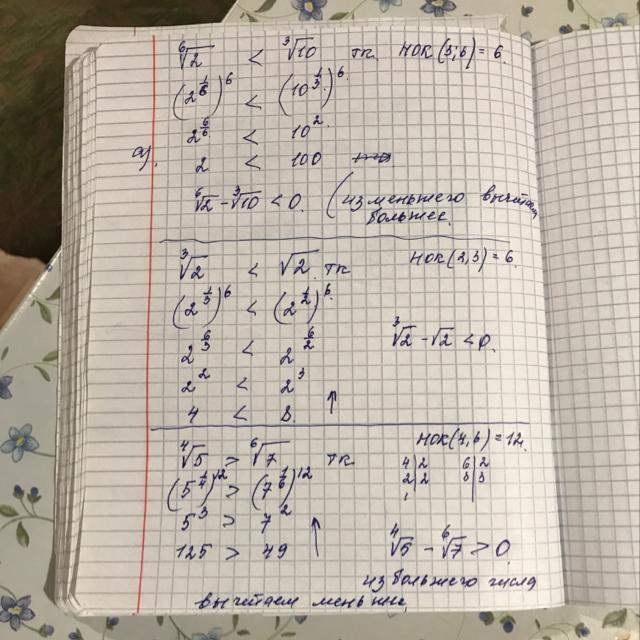 ⁶√2 < ³√10 тк НОК(3;6)=6.
(2^{1/6})^6 < (10^{1/3})^6.
2^{6/6} < 10^2.
а). 2 < 100
⁶√2 - ³√10 < 0. (из меньшего вычитаем
большее.
³√2 < √2. тк НОК(2,3)=6.
(2^{1/3})^6 < (2^{1/2})^6.
2^{6/3} < 2^{6/2} ³√2 - √2 < 0.
2^2 < 2^3
4 < 8. ↑
⁴√5 > ⁶√7 тк НОК(4,6)=12.
(5^{1/4})^12 > (7^{1/6})^12 4|2 6|2
5^3 > 7^2 2|2 3|3
1
125 > 49 ↑ ⁴√5 - ⁶√7 > 0
из большего числа
вычитаем меньшее